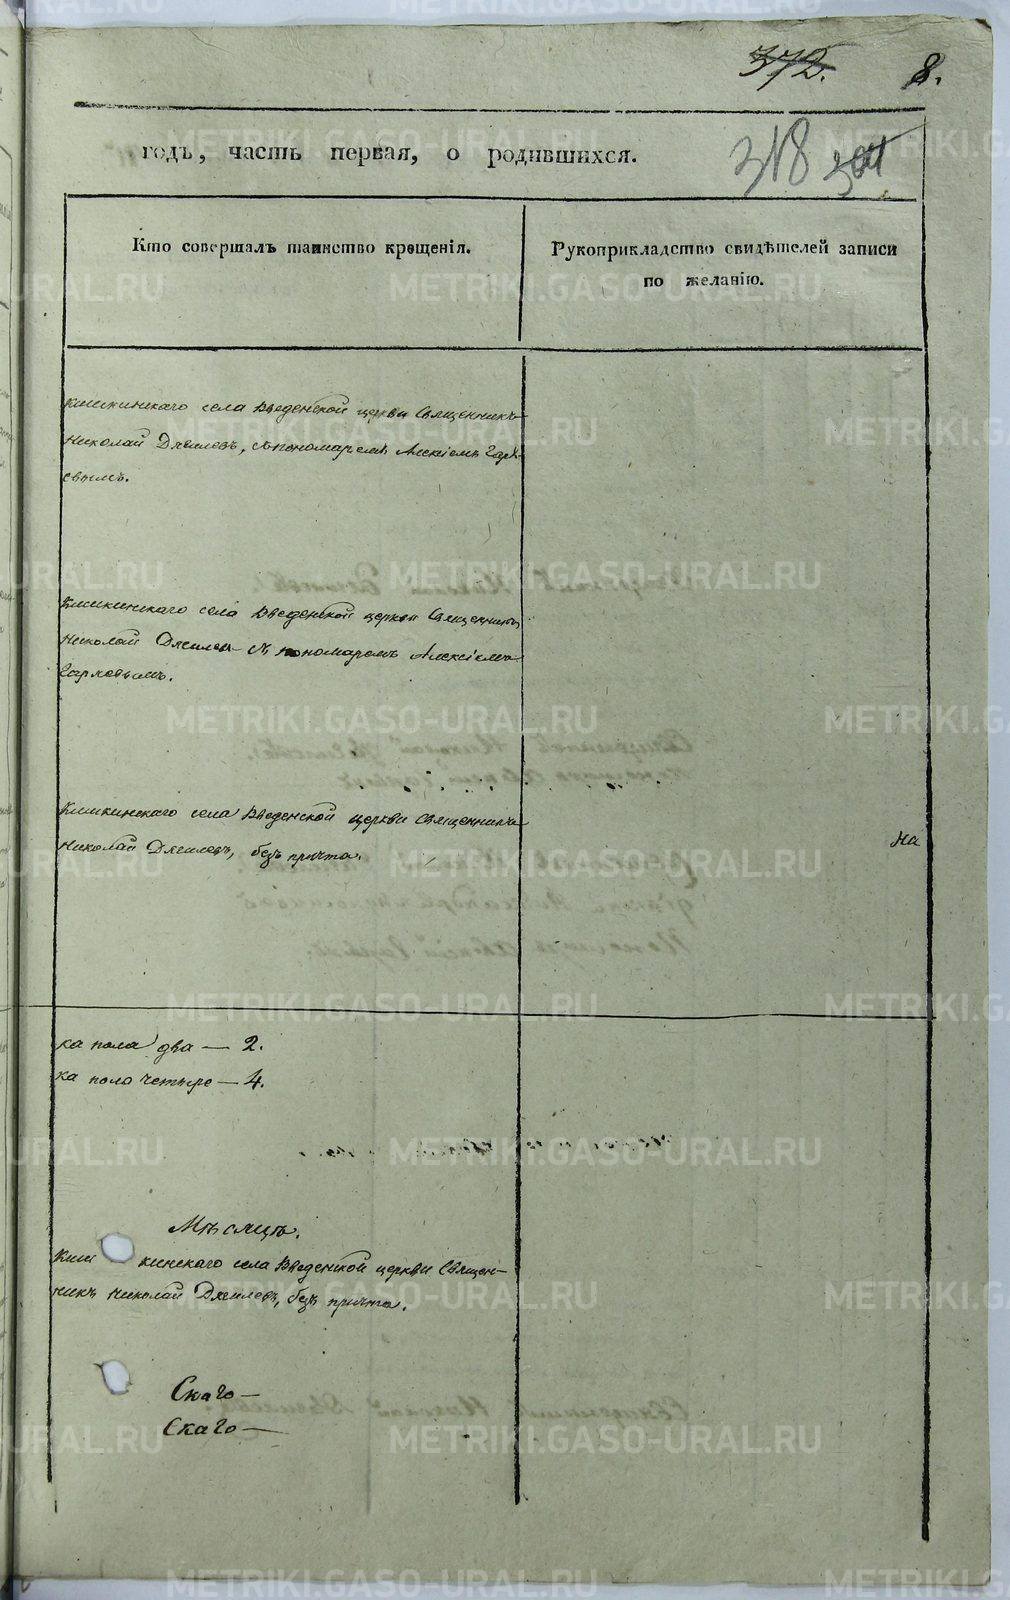 372. 8.
318 304
годъ, часть первая, о родившихся.
Кто совершалъ таинство крещенія.
Рукоприкладство свидѣтелей записи
по желанію.
Кишкинскаго села Введенской церкви Священникъ
Николай Дягилевъ, съ пономаремъ Алексіемъ Гаря-
евымъ.
Кишкинскаго села Введенской церкви Священникъ
Николай Дягилевъ съ пономаремъ Алексіемъ
Кишкинскаго села Введенской церкви Священникъ
Николай Дягилевъ, безъ причта.
на
ка пола два — 2.
ка пола четыре — 4.
Мѣсяцѣ.
Кишкинскаго села Введенской церкви Священ-
никъ Николай Дягилевъ, безъ причта.
Скаго —
Скаго —
METRIKI.GASO-URAL.RU